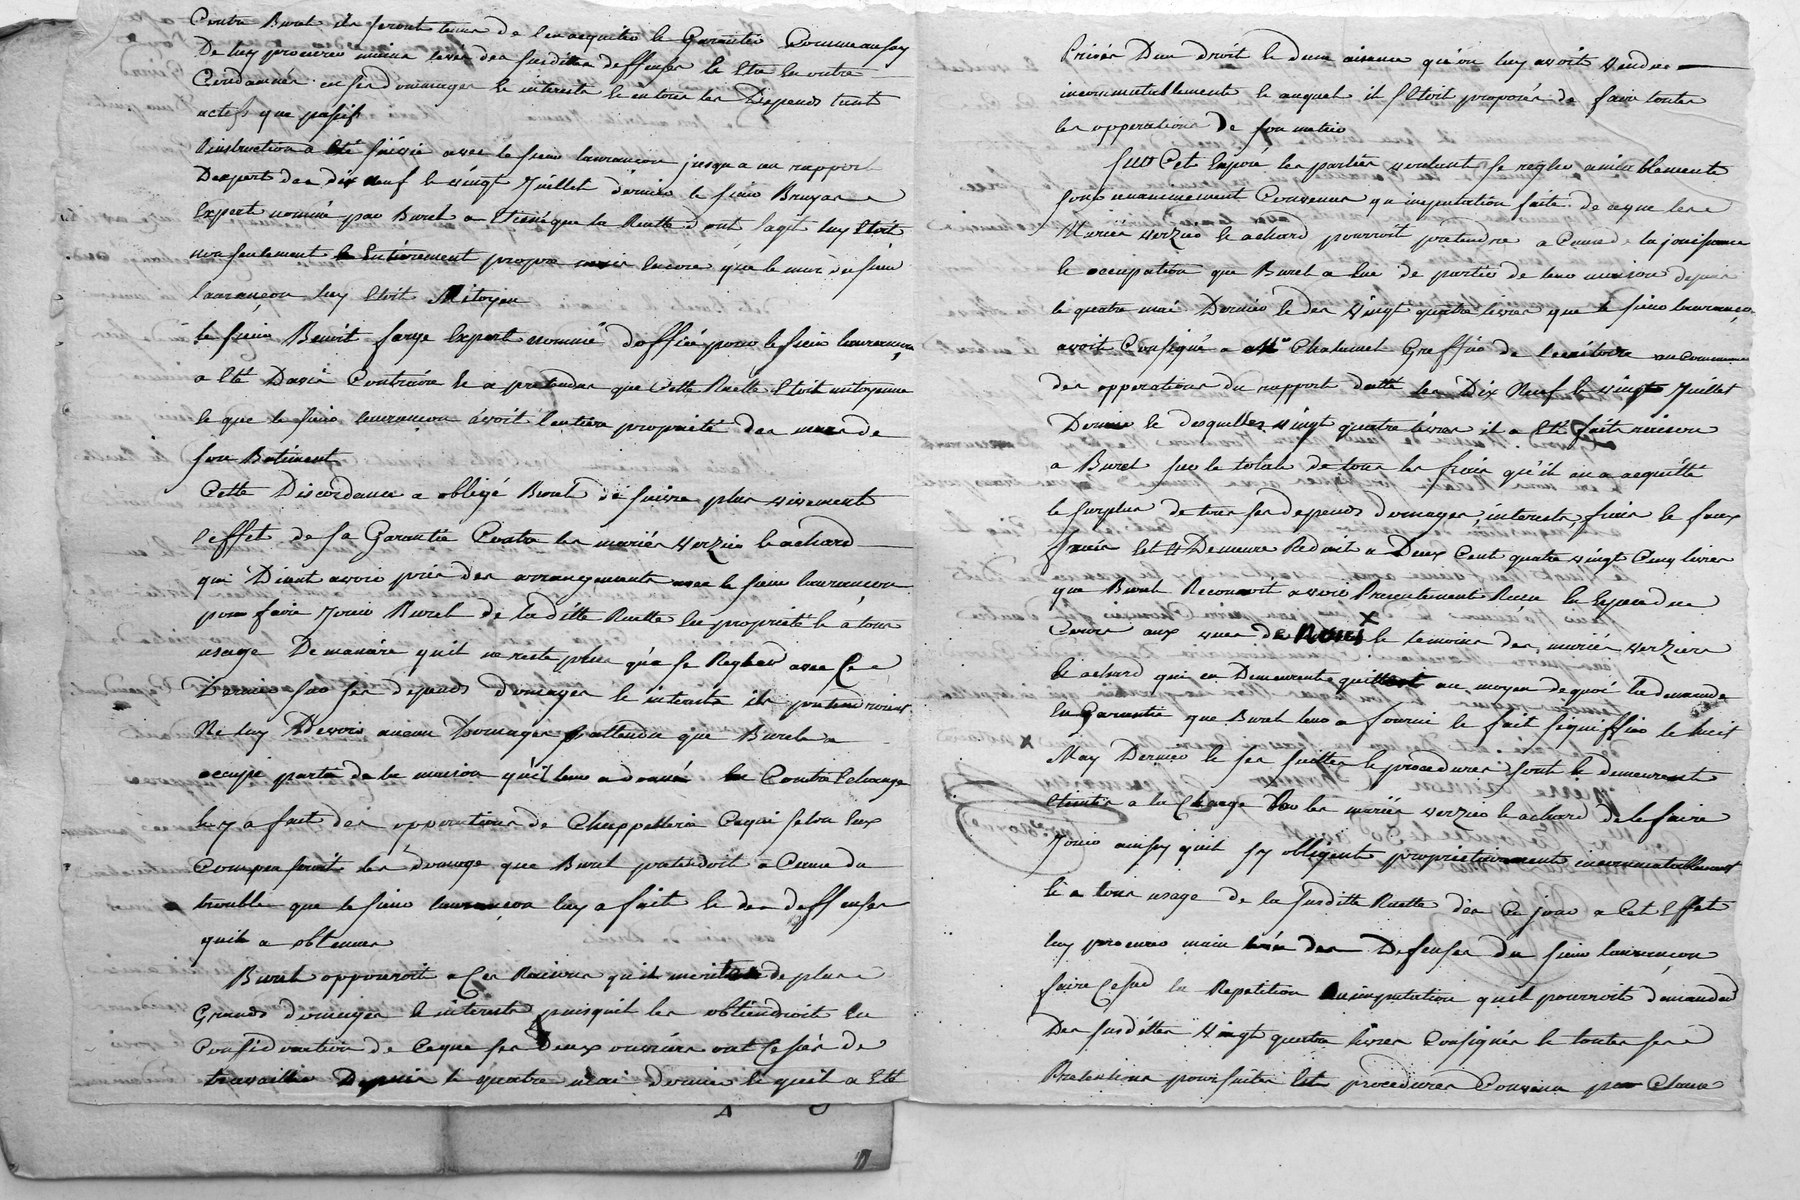 Contre Burel ils seront tenus de l'en acquitter le Garantir Comme aussy
De luy procurer main levée des susdittes deffenses le Etre En outre
Condamner en ses dommages le interests le en tous les Depends tant
actifs que passifs
L'instruction a Eté suivie avec le sieur laurançon jusqu'a un rapport
Dexpert des dix neuf le vingt Juillet dernier le sieur Bruyas
Expert nommé par Burel a Estimé que la Ruette dont s'agit luy Etoit
non seulement Entièrement propre mais Encore que le mur du sieur
laurançon luy Etoit Mitoyen
le sieur Benoit farge Expert nommé d'office pour le sieur laurançon
a Eté Davis Contraire le a pretendu que Cette Ruette Etoit mitoyenne
le que le sieur laurançon avoit l'entiere propriété des murs de
son Batiment
Cette Discordance a obligé Burel de suivre plus vivement
l'effet de sa Garantie Contre les mariés verzier le achard
qui Disent avoir pris des arrangements avec le sieur laurançon
pour faire Jouir Burel de laditte Ruette En propriété le a tous
usage De maniere qu'il ne reste plus qu'a se Regler avec Ce
Dernier sur ses depends domages le interests ils pretendroient
Ne luy Devoir aucun Domages attendu que Burel a
occupé partie de la maison qu'il leur a donné En Contre Echange
luy a fait des opperations de Chappellerie Ce qui selon Eux
Compenseroit les domage que Burel pretendoit a Cause du
trouble que le sieur laurançon luy a fait le des deffenses
qu'il a obtenues
Burel opposeroit a Ces Raisons qu'il merite de plus
Grands domages le interests puisquil les obtiendroit En
Considération de Ce que ses Deux ouvriers ont Cessés de
travailler Depuis le quatre mai dernier le quil a Eté
Privés D'un droit le d'une aisance qu'on luy avoit vendue
incommutablement le auquel il s'Etoit proposés de faire toutes
les opperations De son metier
Sur Cet Exposé les parties voulant se regler amiablement
sont unanimement Convenus qu'imputation faite de ce que les
Mariés verzier le achard pourroit pretendre a Cause de la jouissance
le occupation que Burel a Eue de partie de leur maison depuis
le quatre mai Dernier le des vingt quatre livres que le sieur laurançon
avoit Consigné a Me Chalumel Greffier de l'ecritoire au Commen
des opperations du rapport datté les Dix Neuf le vingt Juillet
Dernier le desquelles vingt quatre livres il a Eté fait raison
a Burel sur le totale de tous les frais qu'il en a acquitté
le surplus de tous ses depends domages, interests, frais le faux
frais Est Demeuré Reduit a Deux Cent quatre vingt Cinq livres
que Burel Reconnoit avoir Presentement Reçu En Especes de
Cours aux vues de x le temoins des mariés verzier
le achard qui en Demeurent quittes au moyen de quoi la demande
En Garantie que Burel leur a fourni le fait signiffier le huit
x May Dernier le ses suittes le procedures sont le demeurent
Eteintes a la Charge Par les mariés verzier le achard de le faire
Jouir ainsy quil sy obligent proprietairement incommutablement
le a tous usage de la susditte Ruette dès Ce jour a Cet Effet
luy procurer main levée des Defenses du sieur laurançon
faire Cesser la Repetition ou imputation quil pourroit demander
Des susdittes vingt quatre livres Consignés le toutes ses
Pretentions poursuites Et procedures Convenu par Clause